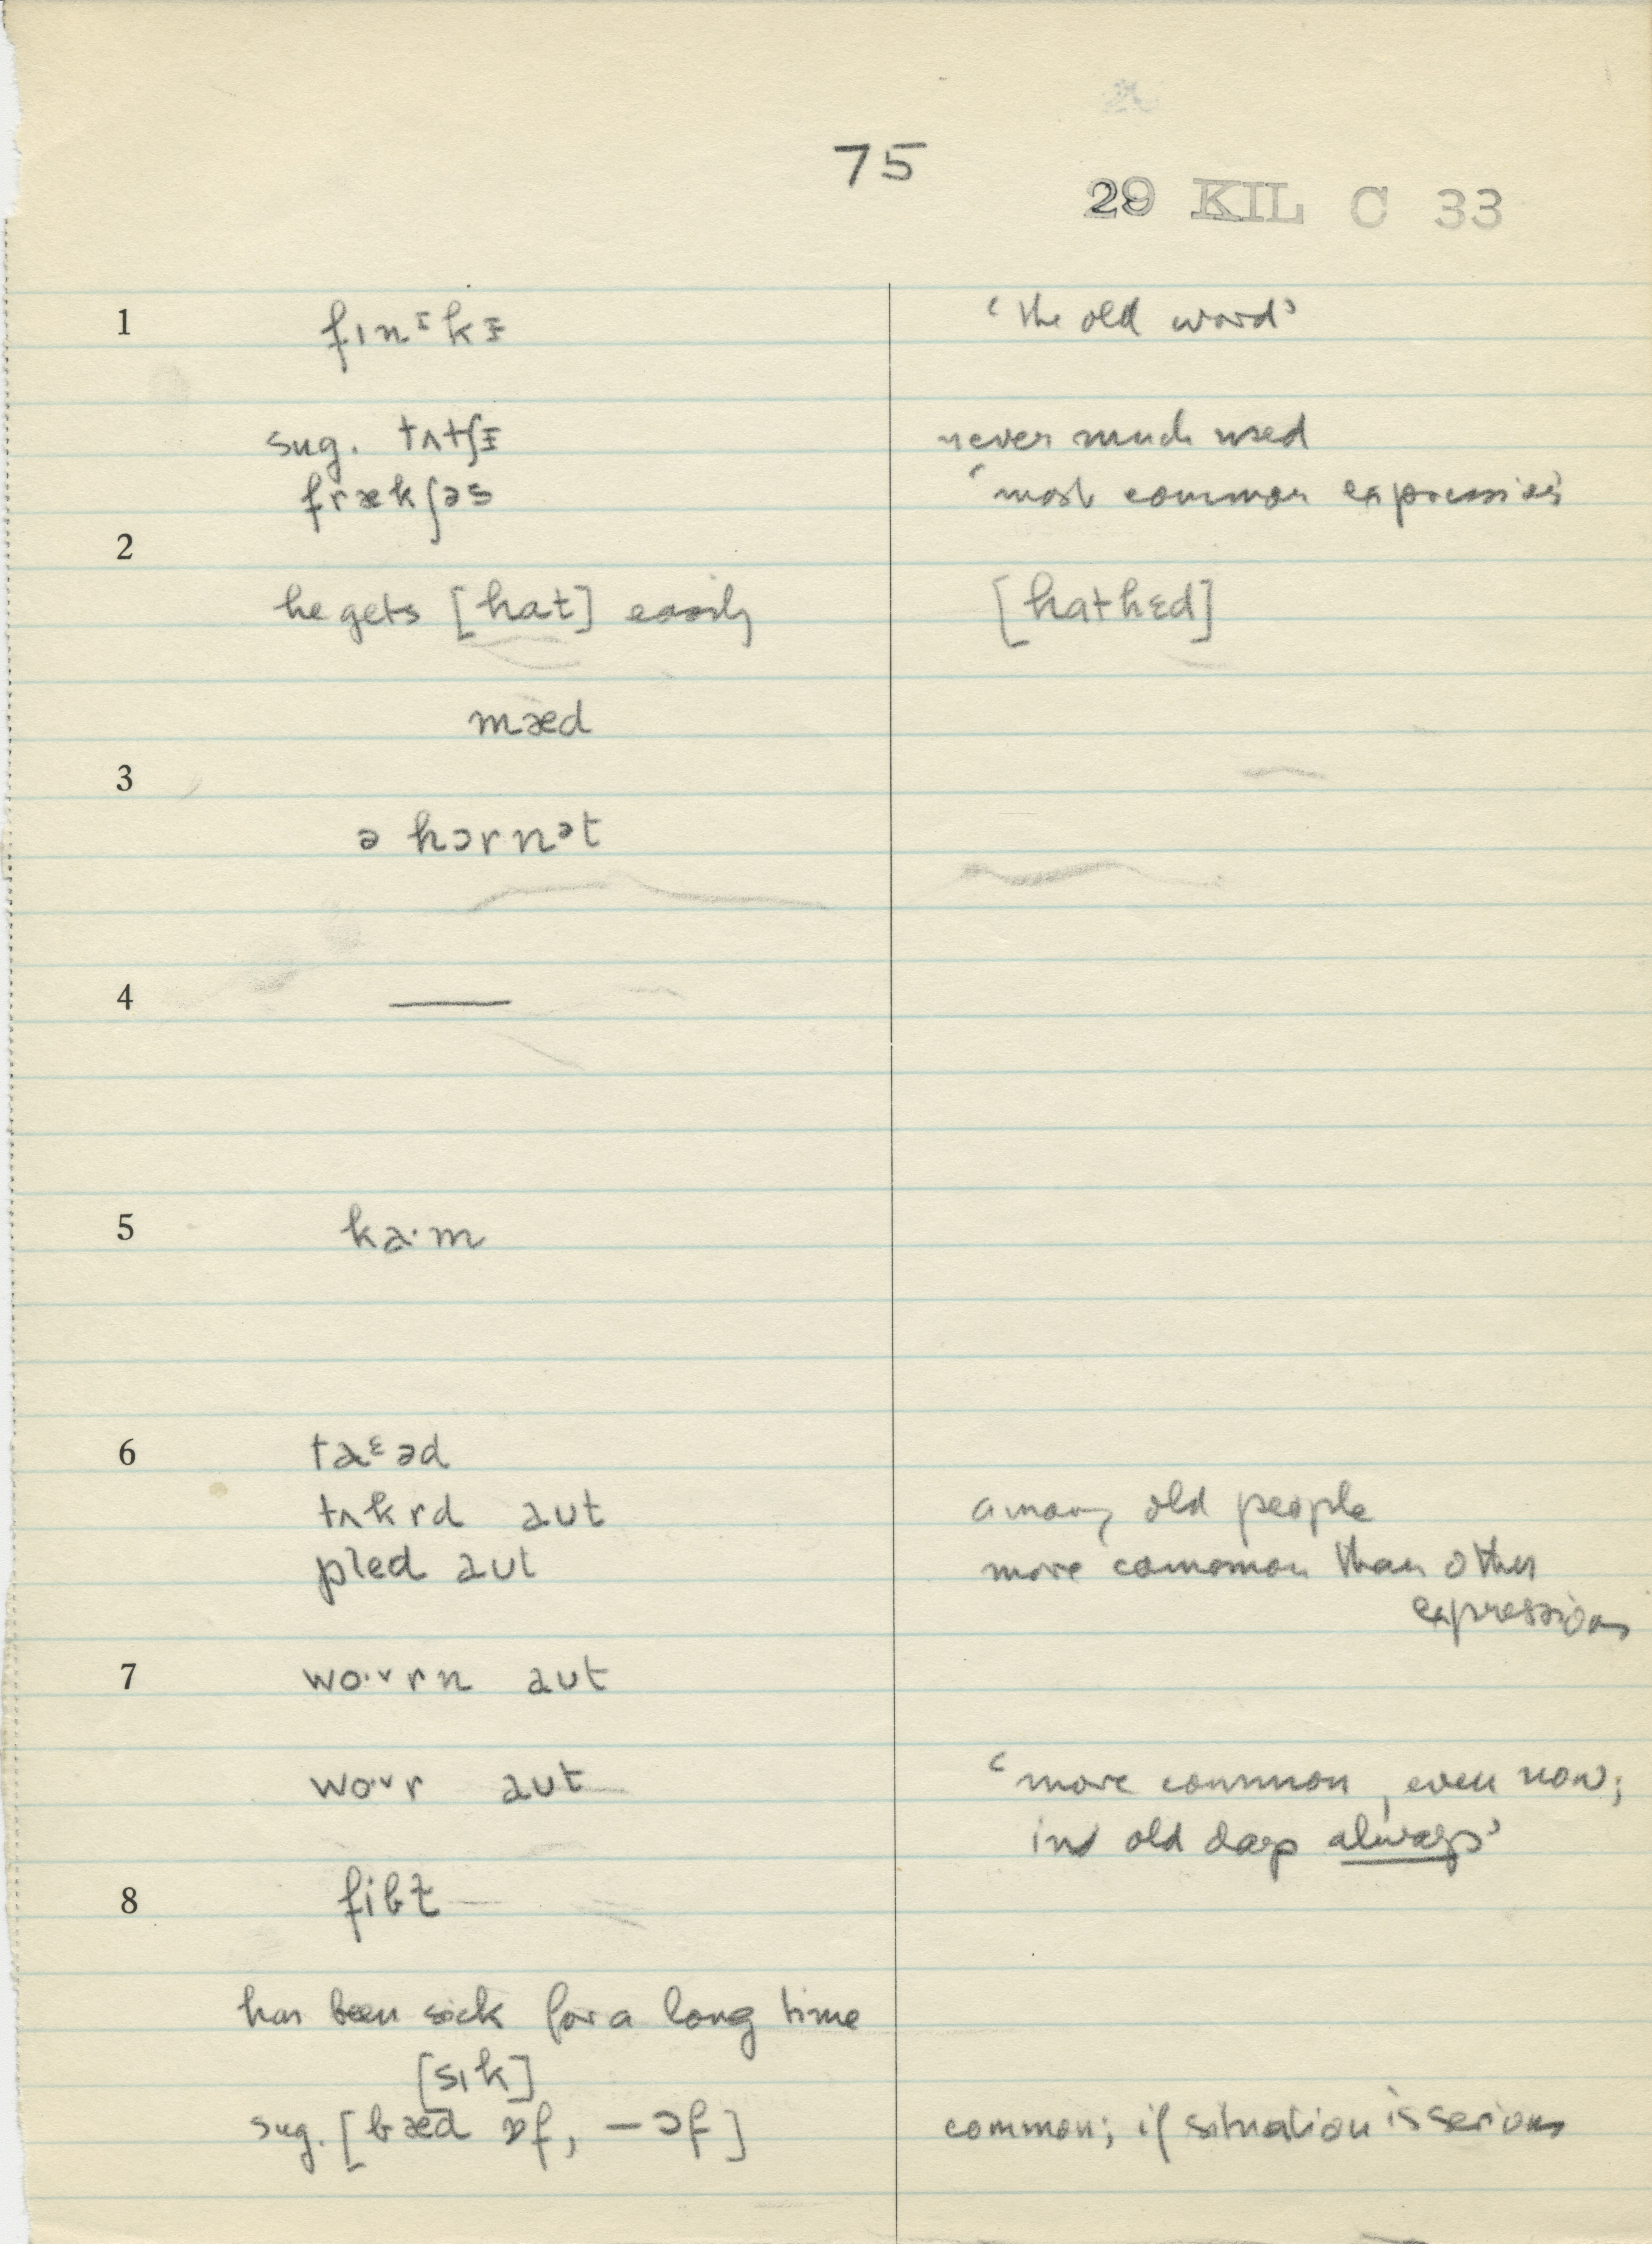 75
29 KIL C 33
1 fɪnᵻkᵻ ‘the old word’
sug. tʌtʃᵻ never much used
frækʃəs ‘most common expression’
2
he gets [hat] easily [hathɛd]
mæd
3
ə hɔrnᵊt
4 —
5 ka·m
6 taᵋəd
tʌkrd aut among old people
pled aut more common than other
expressions
7 wo·ᵛrn aut
wo·ᵛr aut ‘more common, even now;
in old days always’
8 fibɫ
has been sick for a long time
[sɪk]
sug. [bæd ɒf, — ɔf] common; if situation is serious